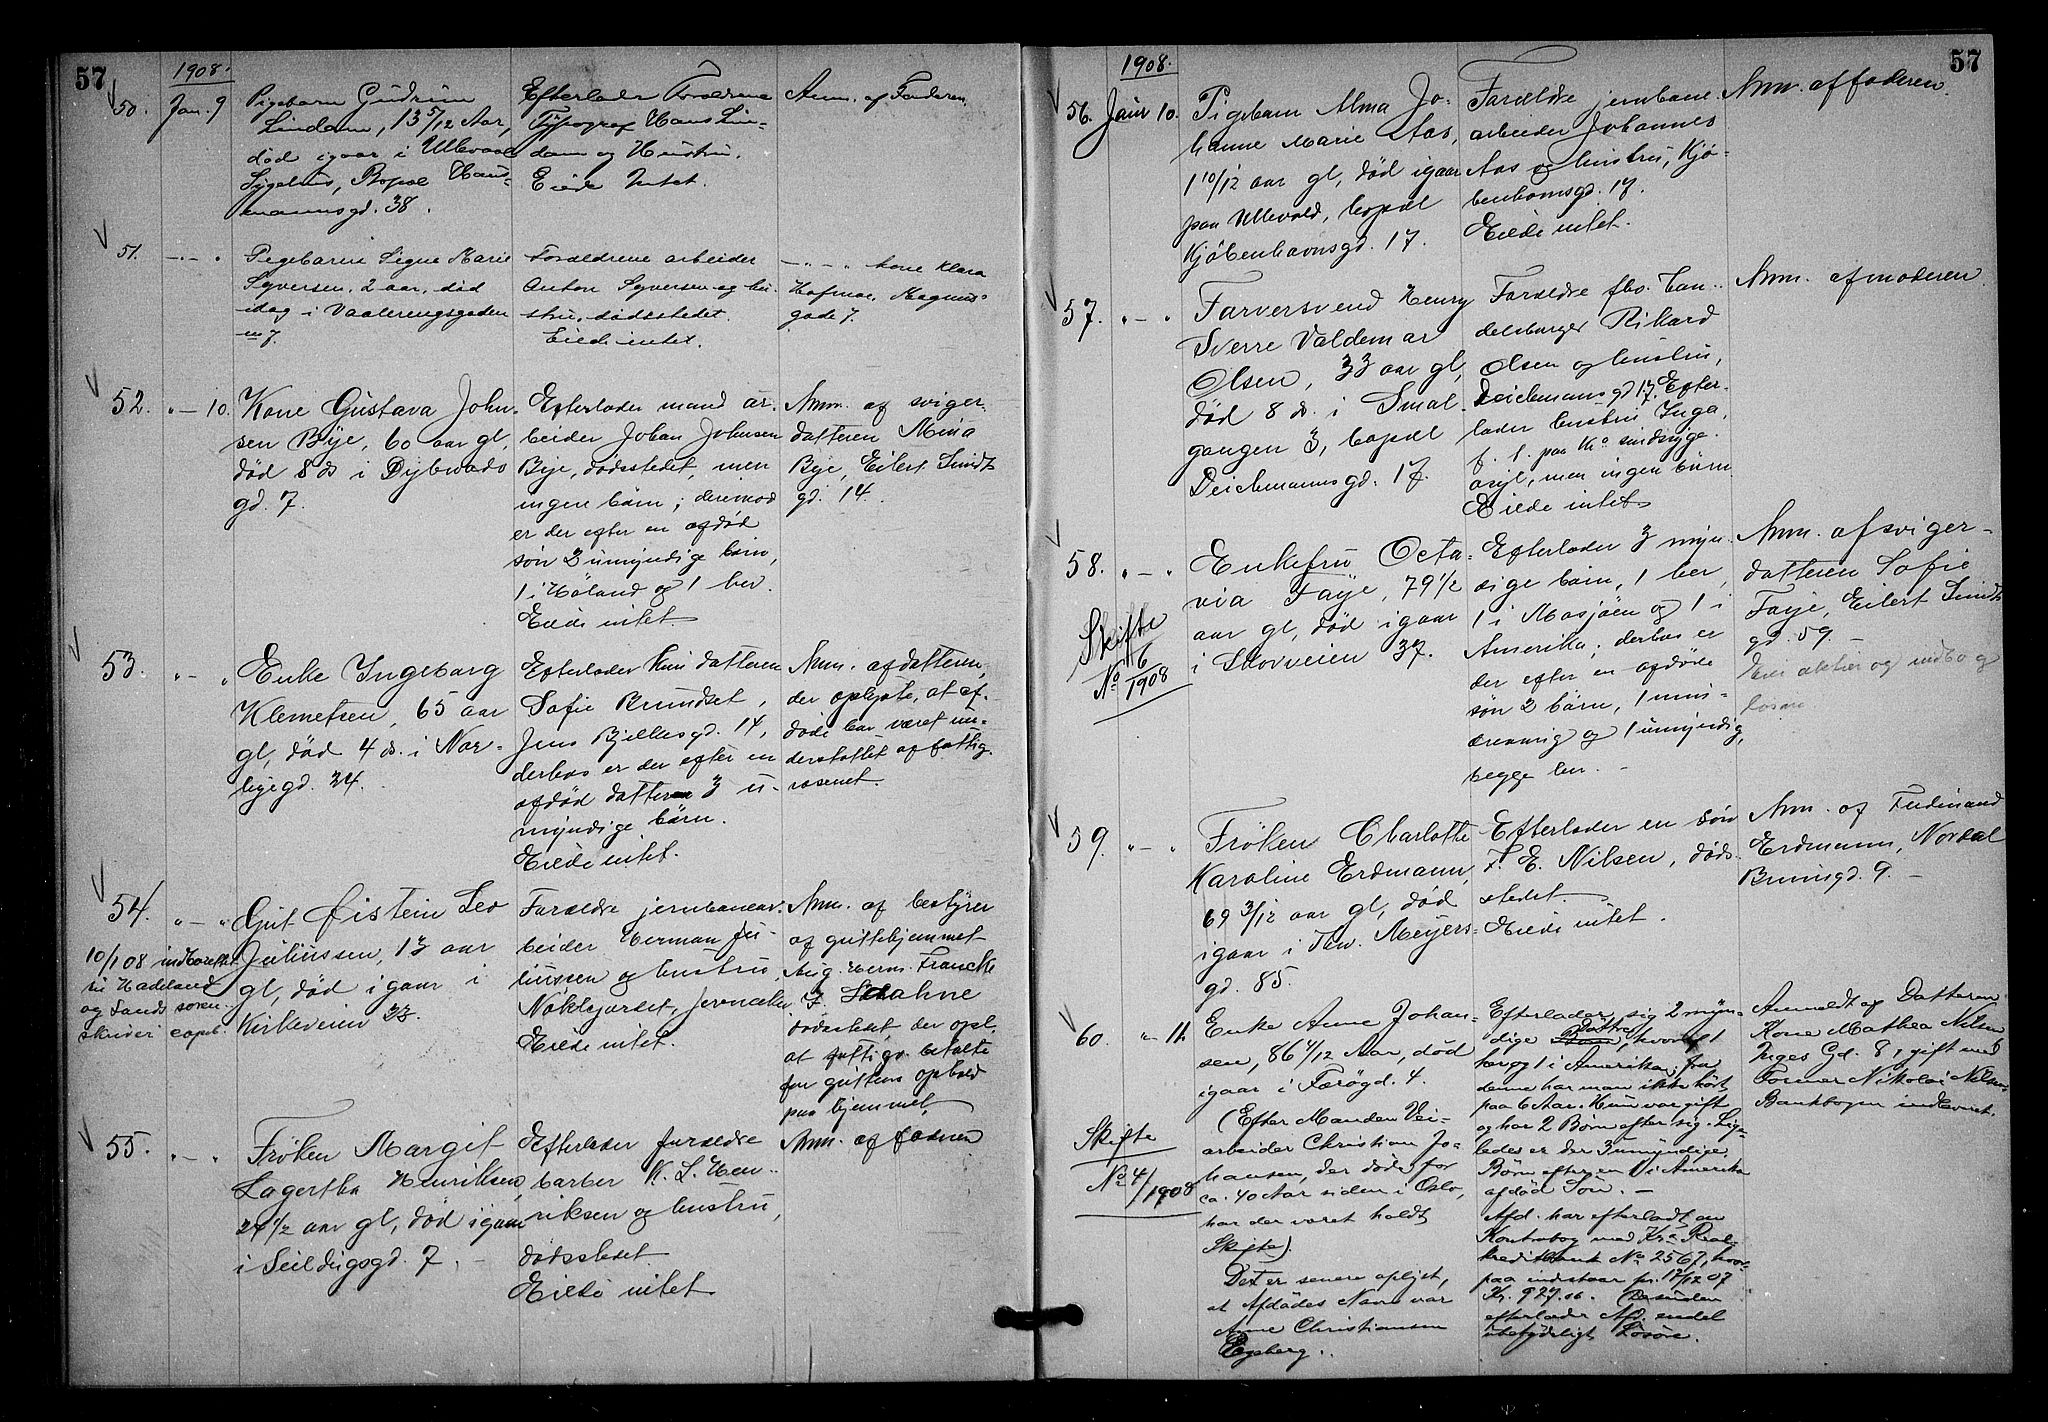 57
1908.
50. Jan. 9
Pigebarn Gudrun
Lindam, 13 5/12 Aar,
død igaar i Ullevaal
Sygehus, Bopæl
mannsgd. 38.
Efterlader Forældrene
Typograf Hans Lin-
dam og Hustru.
Eiede Intet.
Anm. af Faderen
51. " — "
Pigebarnet Signe Marie
Syversen, 2 aar, død
idag i Vaalerengsgaden
7
Forældrene arbeider
Anton Syversen og hu-
stru, dødsstedet.
Eiede intet.
— " — " kone Klara
Hofmoe, Magnus-
gade 7.
52. " — 10.
Kone Gustava John-
sen Bye, 60 aar gl,
død 8 ds i Dybwads
gd. 7.
Efterlader mand ar-
beider Johan Johnsen
Bye, dødsstedet, men
ingen børn; derimod
er der efter en afdød
søn 2 umyndige børn,
1 i Høland og 1 her.
Eiede intet
Anm. af sviger-
datteren Mina
Bye, Eilert Sundts
gd. 14.
53. " — "
Enke Ingeborg
Klemetsen, 65 aar
gl, død 4 ds. i Nor-
bygd. 34.
Efterlader kun datteren
Sofie Brundset,
Jens Bjelkesgd. 14,
derhos er der efter en
afdød datter 3 u-
myndige børn.
Eiede intet.
Anm. af datteren,
der oplyste, at af-
døde har været un-
derstøttet af fattig-
væsenet.
54. " — "
10/1 08 indberettet
til Hadeland
og Lands soren-
skriveri
Gut Øistein Leo
Juliussen, 13 aar
gl, død igaar i
Kirkeveien 23.
Forældre jernbanear-
beider Herman Ju-
liussen og hustru
Nøklegaardet, Jevnaker
Eiede intet.
Anm. af bestyrer
af guttehjemmet
Aug. Herm. Francke
dødsstedet der opl.
at fattigv. betalte
for guttens ophold
paa hjemmet.
55. " — "
Frøken Margit
Lagertha Henriksen,
24 1/2 aar gl, død igaar
i Seildugsgd. 7. —
Efterlader forældre
barber K. L. Hen-
riksen og hustru,
dødsstedet.
Eiede intet
Anm. af faderen
57
1908.
56. Januar 10.
Pigebarn Alma Jo-
hanne Marie Aas,
1 10/12 aar gl, død igaar
paa Ullevold, bopæl
Kjøbenhavnsgd. 17.
Forældre jernbane-
arbeider Johannes
Aas og hustru, Kjø-
benhavnsgd. 17.
Eiede intet.
Anm. af faderen.
57. " — "
Farversvend Henry
Sverre Valdemar
Olsen, 33 aar gl,
død 8 ds. i Smal-
gangen 3, bopæl
Deichmannsgd. 17.
Forældre fhv. han-
delsborger Rikard
Olsen og hustru,
Deichmansgd 17. Efter-
lader hustru Inga,
f. t. paa Ka sindsyge-
asyl, men ingen børn
Eiede intet
Anm. af moderen.
58. " — "
Skifte
No 6/1908
Enkefru Octa-
via Faye, 79 1/2
aar gl, død igaar
i Skovveien 37.
Efterlader 3 myn-
dige børn, 1 her,
1 i Mosjøen og 1 i
Amerika; derhos er
der efter en afdød
søn 2 børn, 1 min-
dreaarig og 1 umyndig,
begge her. —
Anm. af sviger-
datteren Sofie
Faye, Eilert Sundts
gd. 59. —
aktier og indbo og
løsøre
59. " — "
Frøken Charlotte
Karoline Erdmann,
69 3/12 aar gl, død
igaar i Thv. Meyers-
gd. 85.
Efterlader en søn
F. E. Nilsen, døds-
stedet.
Eiede intet.
Anm. af Ferdinand
Erdmann, Nordal
Brunsgd. 9. —
60. " — 11.
Skifte
No 4/1908
Enke Anne Johan-
sen, 86 4/12 Aar, død
igaar i Færøgd. 4.
(Efter Manden Vei-
arbeider Christian Jo-
hansen, der døde for
ca. 40 Aar siden i Oslo,
har der været holdt
Skifte).
Det er senere oplyst,
at Afdødes Navn var
Anne Christiansen
Engberg.
Efterlader sig 2 myn-
dige Døtre, hvoraf 1
her og 1 i Amerika, fra
denne har man ikke hørt
paa 6 Aar. Hun var gift
og har 2 Børn efter sig. Lige-
ledes er der 3 umyndige
Børn efter en i Amerika
afdød Søn. —
Afd. har efterladt en
Kontrabog med Kra Real-
kreditbank No 2567, hvor-
paa indstaar pr. 17/12 07
Kr. 927.06. Desuden
efterlader Afd. endel
ubetydeligt Løsøre.
Anmeldt af Datteren
Kone Mathea Nilsen
Inges Gd. 8, gift med
Former Nikolai Nilsen.
Bankbogen indleveret.